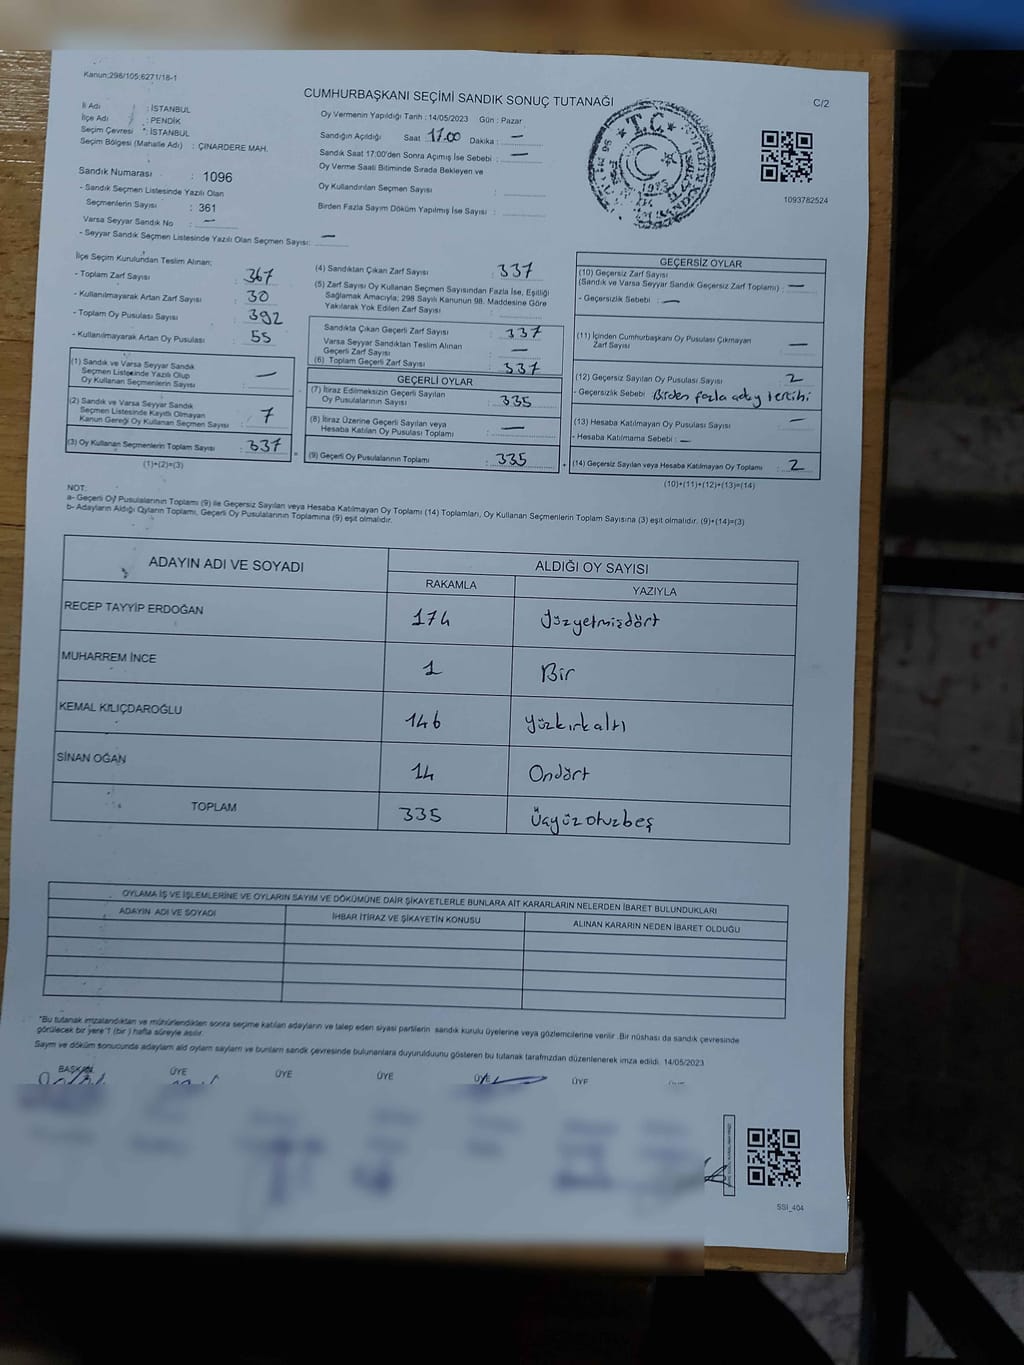 Kanun:298/105;6271/18-1
CUMHURBAŞKANI SEÇİMİ SANDIK SONUÇ TUTANAĞI
C/2
İl Adı : İSTANBUL
İlçe Adı : PENDİK
Seçim Çevresi : İSTANBUL
Seçim Bölgesi (Mahalle Adı) : ÇINARDERE MAH.
Sandık Numarası : 1096
- Sandık Seçmen Listesinde Yazılı Olan
Seçmenlerin Sayısı : 361
Varsa Seyyar Sandık No : —
- Seyyar Sandık Seçmen Listesinde Yazılı Olan Seçmen Sayısı: —
Oy Vermenin Yapıldığı Tarih : 14/05/2023 Gün : Pazar
Sandığın Açıldığı Saat 17.00 Dakika : —
Sandık Saat 17:00'den Sonra Açımış İse Sebebi : —
Oy Verme Saati Bitiminde Sırada Bekleyen ve
Oy Kullandırılan Seçmen Sayısı :
Birden Fazla Sayım Döküm Yapılmış İse Sayısı :
T.C.
1093782524
İlçe Seçim Kurulundan Teslim Alınan;
- Toplam Zarf Sayısı : 367
- Kullanılmayarak Artan Zarf Sayısı : 30
- Toplam Oy Pusulası Sayısı : 392
- Kullanılmayarak Artan Oy Pusulası : 55
(1) Sandık ve Varsa Seyyar Sandık
Seçmen Listesinde Yazılı Olup
Oy Kullanan Seçmenlerin Sayısı : —
(2) Sandık ve Varsa Seyyar Sandık
Seçmen Listesinde Kayıtlı Olmayan
Kanun Gereği Oy Kullanan Seçmen Sayısı : 7
(3) Oy Kullanan Seçmenlerin Toplam Sayısı : 337
(1)+(2)=(3)
(4) Sandıktan Çıkan Zarf Sayısı : 337
(5) Zarf Sayısı Oy Kullanan Seçmen Sayısından Fazla İse, Eşitliği
Sağlamak Amacıyla; 298 Sayılı Kanunun 98. Maddesine Göre
Yakılarak Yok Edilen Zarf Sayısı :
Sandıkta Çıkan Geçerli Zarf Sayısı : 337
Varsa Seyyar Sandıktan Teslim Alınan
Geçerli Zarf Sayısı : —
(6) Toplam Geçerli Zarf Sayısı : 337
GEÇERLİ OYLAR
(7) İtiraz Edilmeksizin Geçerli Sayılan
Oy Pusulalarının Sayısı : 335
(8) İtiraz Üzerine Geçerli Sayılan veya
Hesaba Katılan Oy Pusulası Toplamı : —
(9) Geçerli Oy Pusulalarının Toplamı : 335
GEÇERSİZ OYLAR
(10) Geçersiz Zarf Sayısı
(Sandık ve Varsa Seyyar Sandık Geçersiz Zarf Toplamı) : —
- Geçersizlik Sebebi : —
(11) İçinden Cumhurbaşkanı Oy Pusulası Çıkmayan
Zarf Sayısı : —
(12) Geçersiz Sayılan Oy Pusulası Sayısı : 2
- Geçersizlik Sebebi : Birden fazla aday tercihi
(13) Hesaba Katılmayan Oy Pusulası Sayısı : —
- Hesaba Katılmama Sebebi : —
(14) Geçersiz Sayılan veya Hesaba Katılmayan Oy Toplamı : 2
(10)+(11)+(12)+(13)=(14)
NOT:
a- Geçerli Oy Pusulalarının Toplamı (9) ile Geçersiz Sayılan veya Hesaba Katılmayan Oy Toplamı (14) Toplamları, Oy Kullanan Seçmenlerin Toplam Sayısına (3) eşit olmalıdır. (9)+(14)=(3)
b- Adayların Aldığı Oyların Toplamı, Geçerli Oy Pusulalarının Toplamına (9) eşit olmalıdır.
ADAYIN ADI VE SOYADI
ALDIĞI OY SAYISI
RAKAMLA YAZIYLA
RECEP TAYYİP ERDOĞAN 174 Yüzyetmişdört
MUHARREM İNCE 1 Bir
KEMAL KILIÇDAROĞLU 146 Yüzkırkaltı
SİNAN OĞAN 14 Ondört
TOPLAM 335 Üçyüzotuzbeş
OYLAMA İŞ VE İŞLEMLERİNE VE OYLARIN SAYIM VE DÖKÜMÜNE DAİR ŞİKAYETLERLE BUNLARA AİT KARARLARIN NELERDEN İBARET BULUNDUKLARI
ADAYIN ADI VE SOYADI İHBAR İTİRAZ VE ŞİKAYETİN KONUSU ALINAN KARARIN NEDEN İBARET OLDUĞU
*Bu tutanak imzalandıktan ve mühürlendikten sonra seçime katılan adayların ve talep eden siyasi partilerin sandık kurulu üyelerine veya gözlemcilerine verilir .Bir nüshası da sandık çevresinde
görülecek bir yere 1 (bir ) hafta süreyle asılır.
Sayım ve döküm sonucunda adayların aldı oyların sayıların ve bunların sandık çevresinde bulunanlara duyurulduunu gösteren bu tutanak tarafmızdan düzenlenerek imza edildi. 14/05/2023
BAŞKAN ÜYE ÜYE ÜYE ÜYE ÜYE
SSI_404